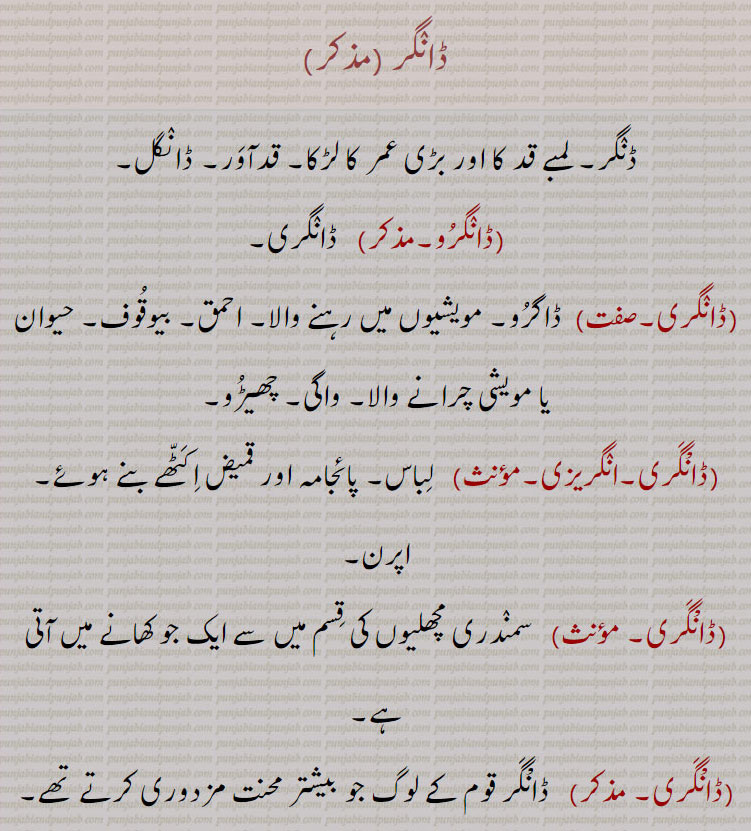 ڈانْگر (مذکر)
ڈنْگر۔ لمبے قد کا اور بڑی عمر کا لڑکا۔ قدآوَر۔ ڈانْگل۔
(ڈانْگرُو۔مذکر) ڈانْگری۔
(ڈانْگری۔صفت) ڈاگرُو۔ مویشیوں میں رہنے والا۔ احمق۔ بیوقُوف۔ حیوان
یا مویشی چرانے والا۔ واگی۔ چھیڑُو۔
(ڈانْگَری۔انْگریزی۔مؤنث) لِباس۔ پائجامہ اور قمیض اِکَٹّھے بنے ہوئے۔
اپرن۔
(ڈانْگَری۔ مؤنث) سمنْدری مچھلیوں کی قِسم میں سے ایک جو کھانے میں آتی
ہے۔
(ڈانْگَری۔ مذکر) ڈانْگَر قوم کے لوگ جو بیشتر محنت مزدوری کرتے تھے۔